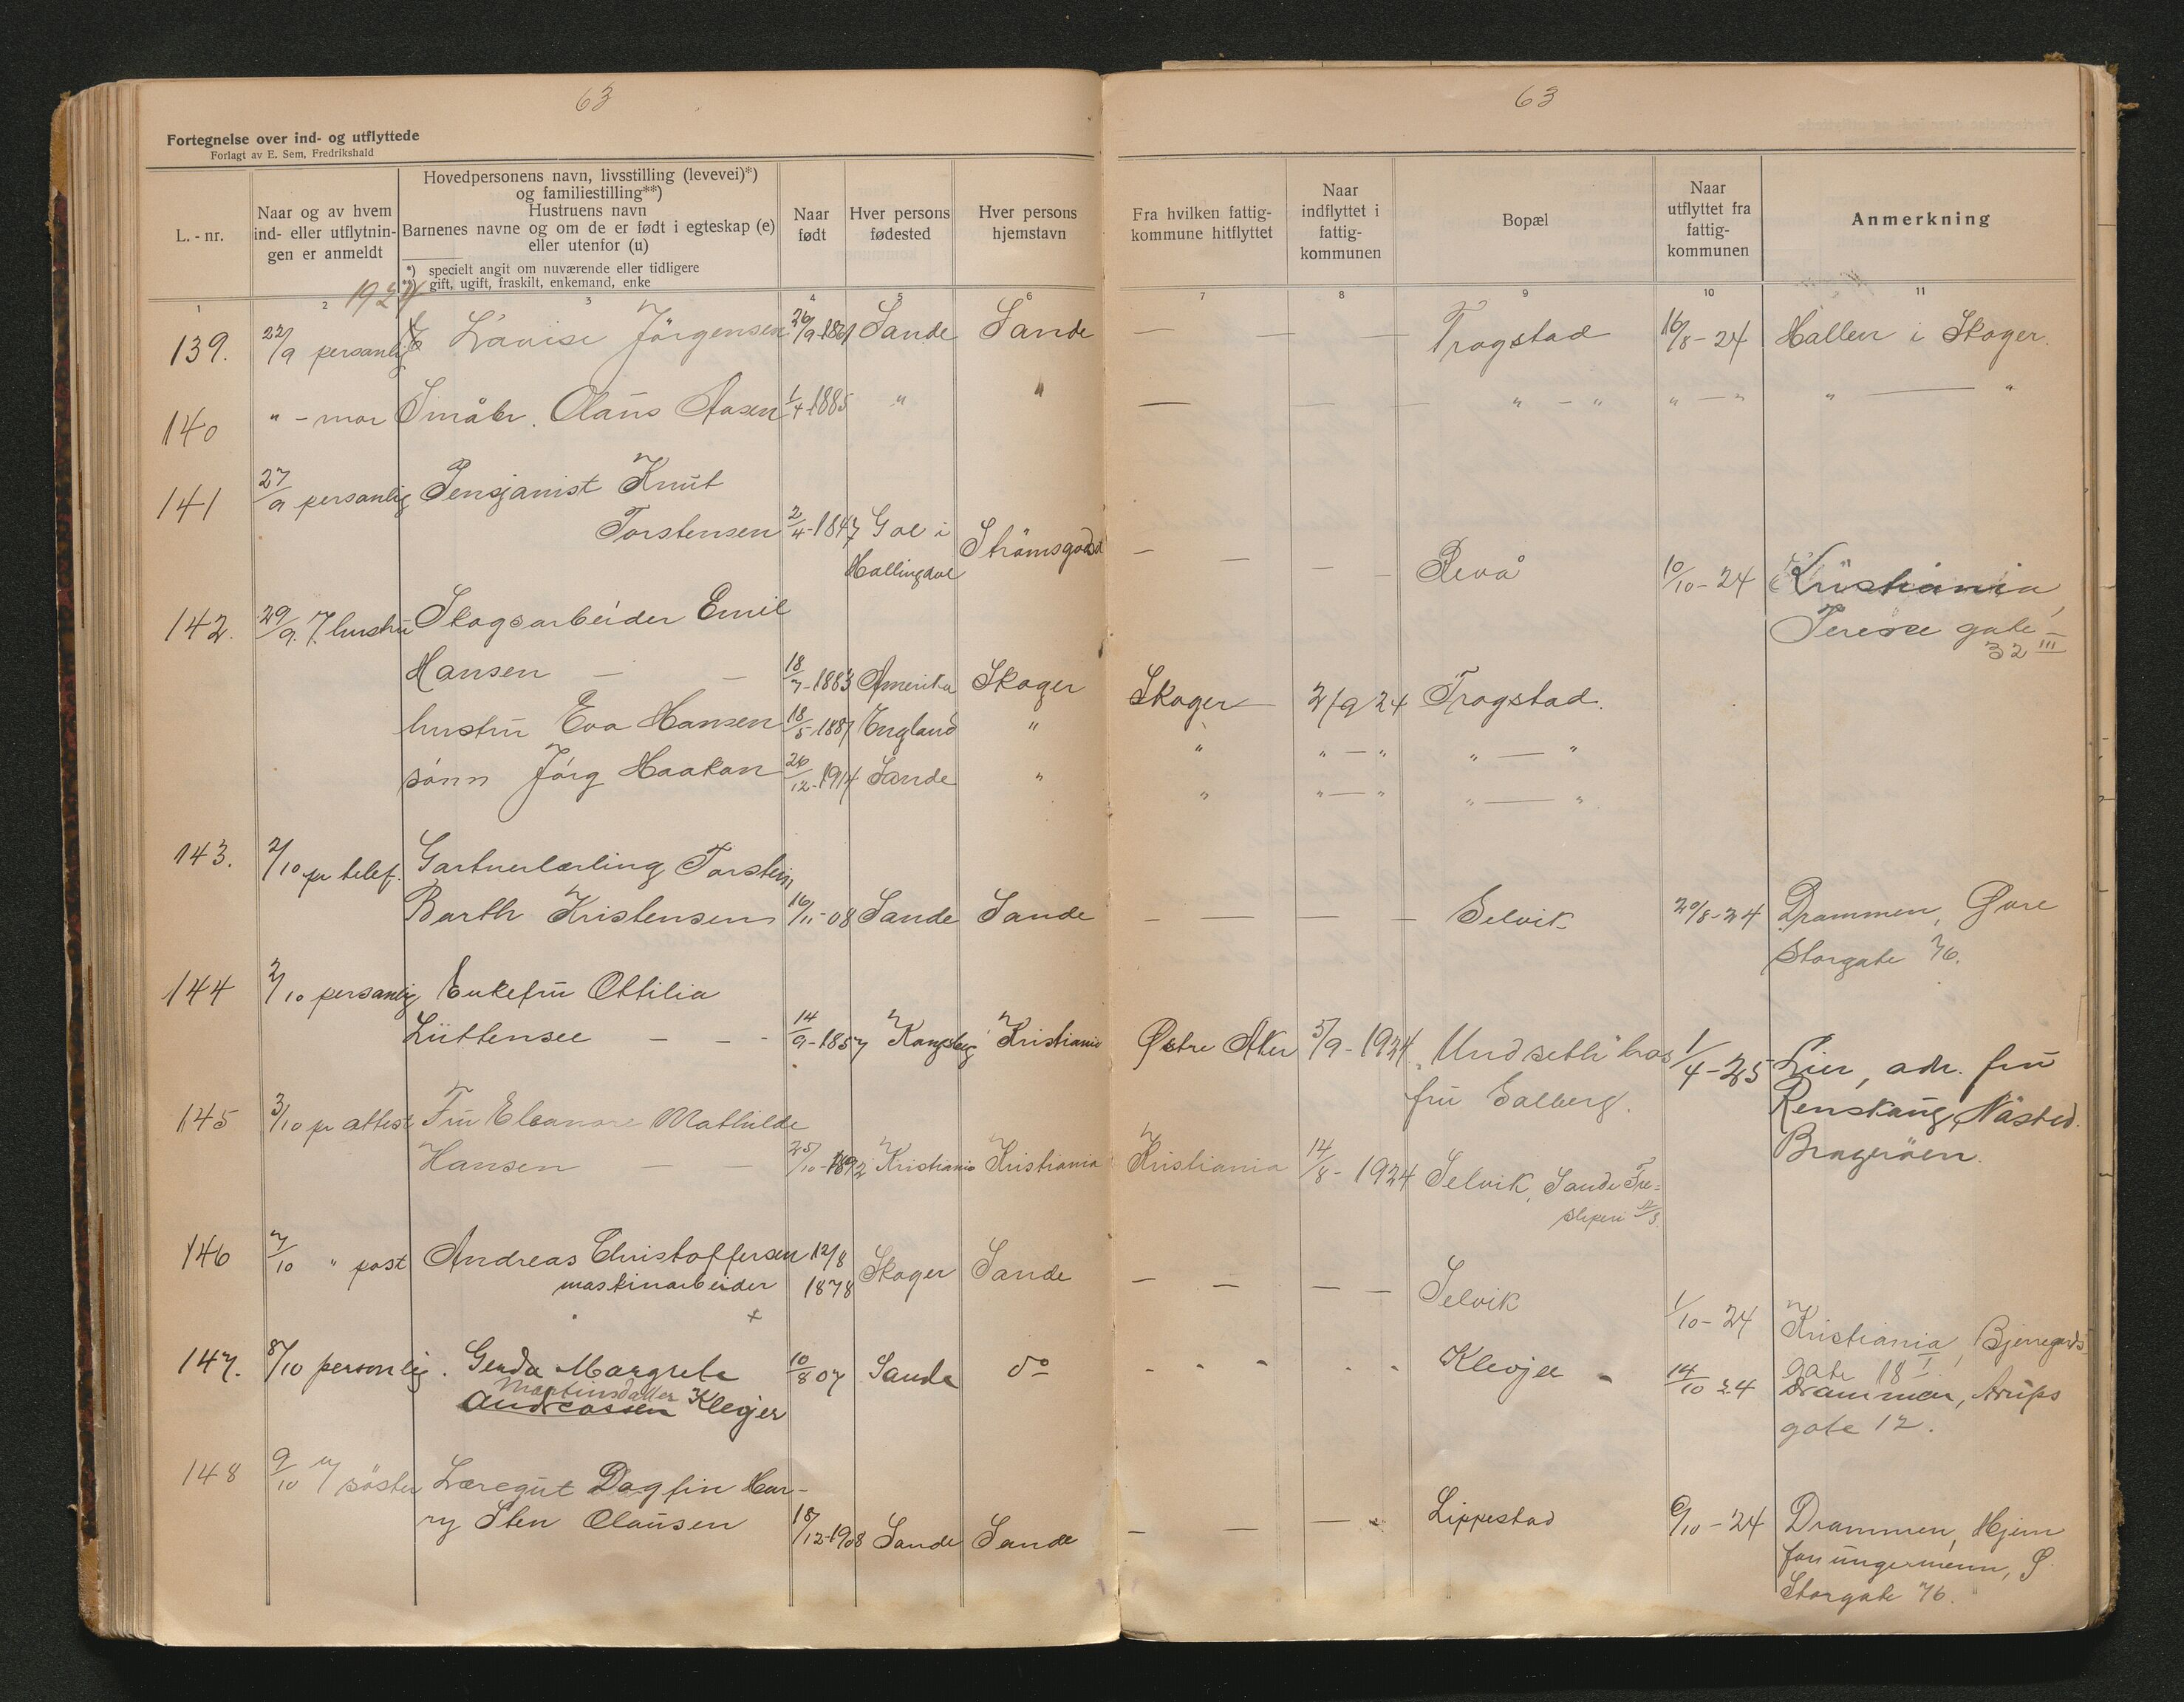 63
Fortegnelse over ind- og utflyttede
Forlagt av E. Sem, Fredrikshald
L. - nr.
Naar og av hvem
ind- eller utflytnin-
gen er anmeldt
Hovedpersonens navn, livsstilling (levevei)*)
og familiestilling**)
Hustruens navn
Barnenes navne og om de er født i egteskap (e)
eller utenfor (u)
*) specielt angit om nuværende eller tidligere
**) gift, ugift, fraskilt, enkemand, enke
Naar
født
Hver persons
fødested
Hver persons
hjemstavn
1 2 3 4 5 6
1924
139. 22/9 personlig Lovise Jörgensen 26/9-1861 Sande Sande
140 " - mor Småbr. Olaus Aasen 1/4-1885 " "
141 27/9 personlig Pensjonist Knut
Torstensen 2/4-1847 Gol i Strömsgodset
Hallingdal
142. 29/9. hustru Skogsarbeider Emil
Hansen — — 18/7-1883 Amerika Skoger
hustru Eva Hansen 18/5-1887 England "
sönn Jörg Haakon 26/12-1914 Sande "
143. 2/10 pr telef. Gartnerlærling Torstein
Barth Kristensen 16/11-08 Sande Sande
144 2/10 personlig Enkefru Ottilia
Lüttensee — — - 14/9-1857 Kongsberg Kristiania
145 3/10 pr attest Fru Eleanore Mathilde
Hansen — — 25/10-1892 Kristiania Kristiania
146 7/10 " post Andreas Christoffersen 12/8
maskinarbeider 1878 Skoger Sande
x
147. 8/10 personlig. Gerda Margrete 10/8 07 Sande do
Martinsdatter
Andreassen Klevjer
148 9/10 v/ söster Læregut Dagfin Har-
ry Sten Olausen 18/12-1908 Sande Sande
63
Fra hvilken fattig-
kommune hitflyttet
Naar
indflyttet i
fattig-
kommunen
Bopæl
Naar
utflyttet fra
fattig-
kommunen
Anmerkning
7 8 9 10 11
— — — Trogstad 16/8-24 Hallen i Skoger.
— — — " - " " — " " — "
— — — - Revå 10/10-24 Kristiania,
Terese gate
32 III
Skoger — 2/9 24 Trogstad.
" " — " " — "
" " — " " — "
— — — — Selvik 20/8-24 Drammen, Øvre
Storgate 76.
Østre Aker 5/9-1924 "Undseth" hos 1/4-25 Lier, adr. fru
fru Solberg. Renskaug, Nösted.
Bragerøen.
Kristiania 14/8-1924 Selvik, Sande Tre=
sliperi A/S.
— — — - Selvik 1/10-24 Kristiania, Bjerregards
gate 18 I.
- - - - - Klevjer - 14/10 24 Drammen, Arups
gate 12.
— — — - Lippestad 6/10-24 Drammen, Hjem
for unge menn, Ø.
Storgate 76.